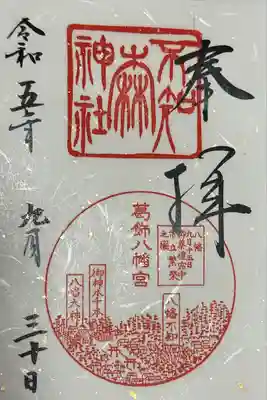 奉拝
不知
森
神社
葛飾八幡宮
八幡不知
御神木千本
八百大神
令和五年
九月
三十日